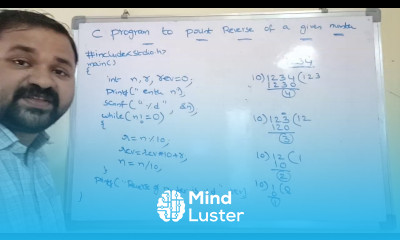 C program to print Reverse of a given number
#include<stdio.h>
main()
{
int n, r, rev=0;
printf("enter n");
scanf("%d", &n);
while(n!=0)
{
r=n%10;
rev=rev*10+r;
n=n/10;
}
1234
10) 1234 (123
1230
4
10) 123 (12
120
3
10) 12 (1
10
2
10) 1 (0
0
Mind
Luster